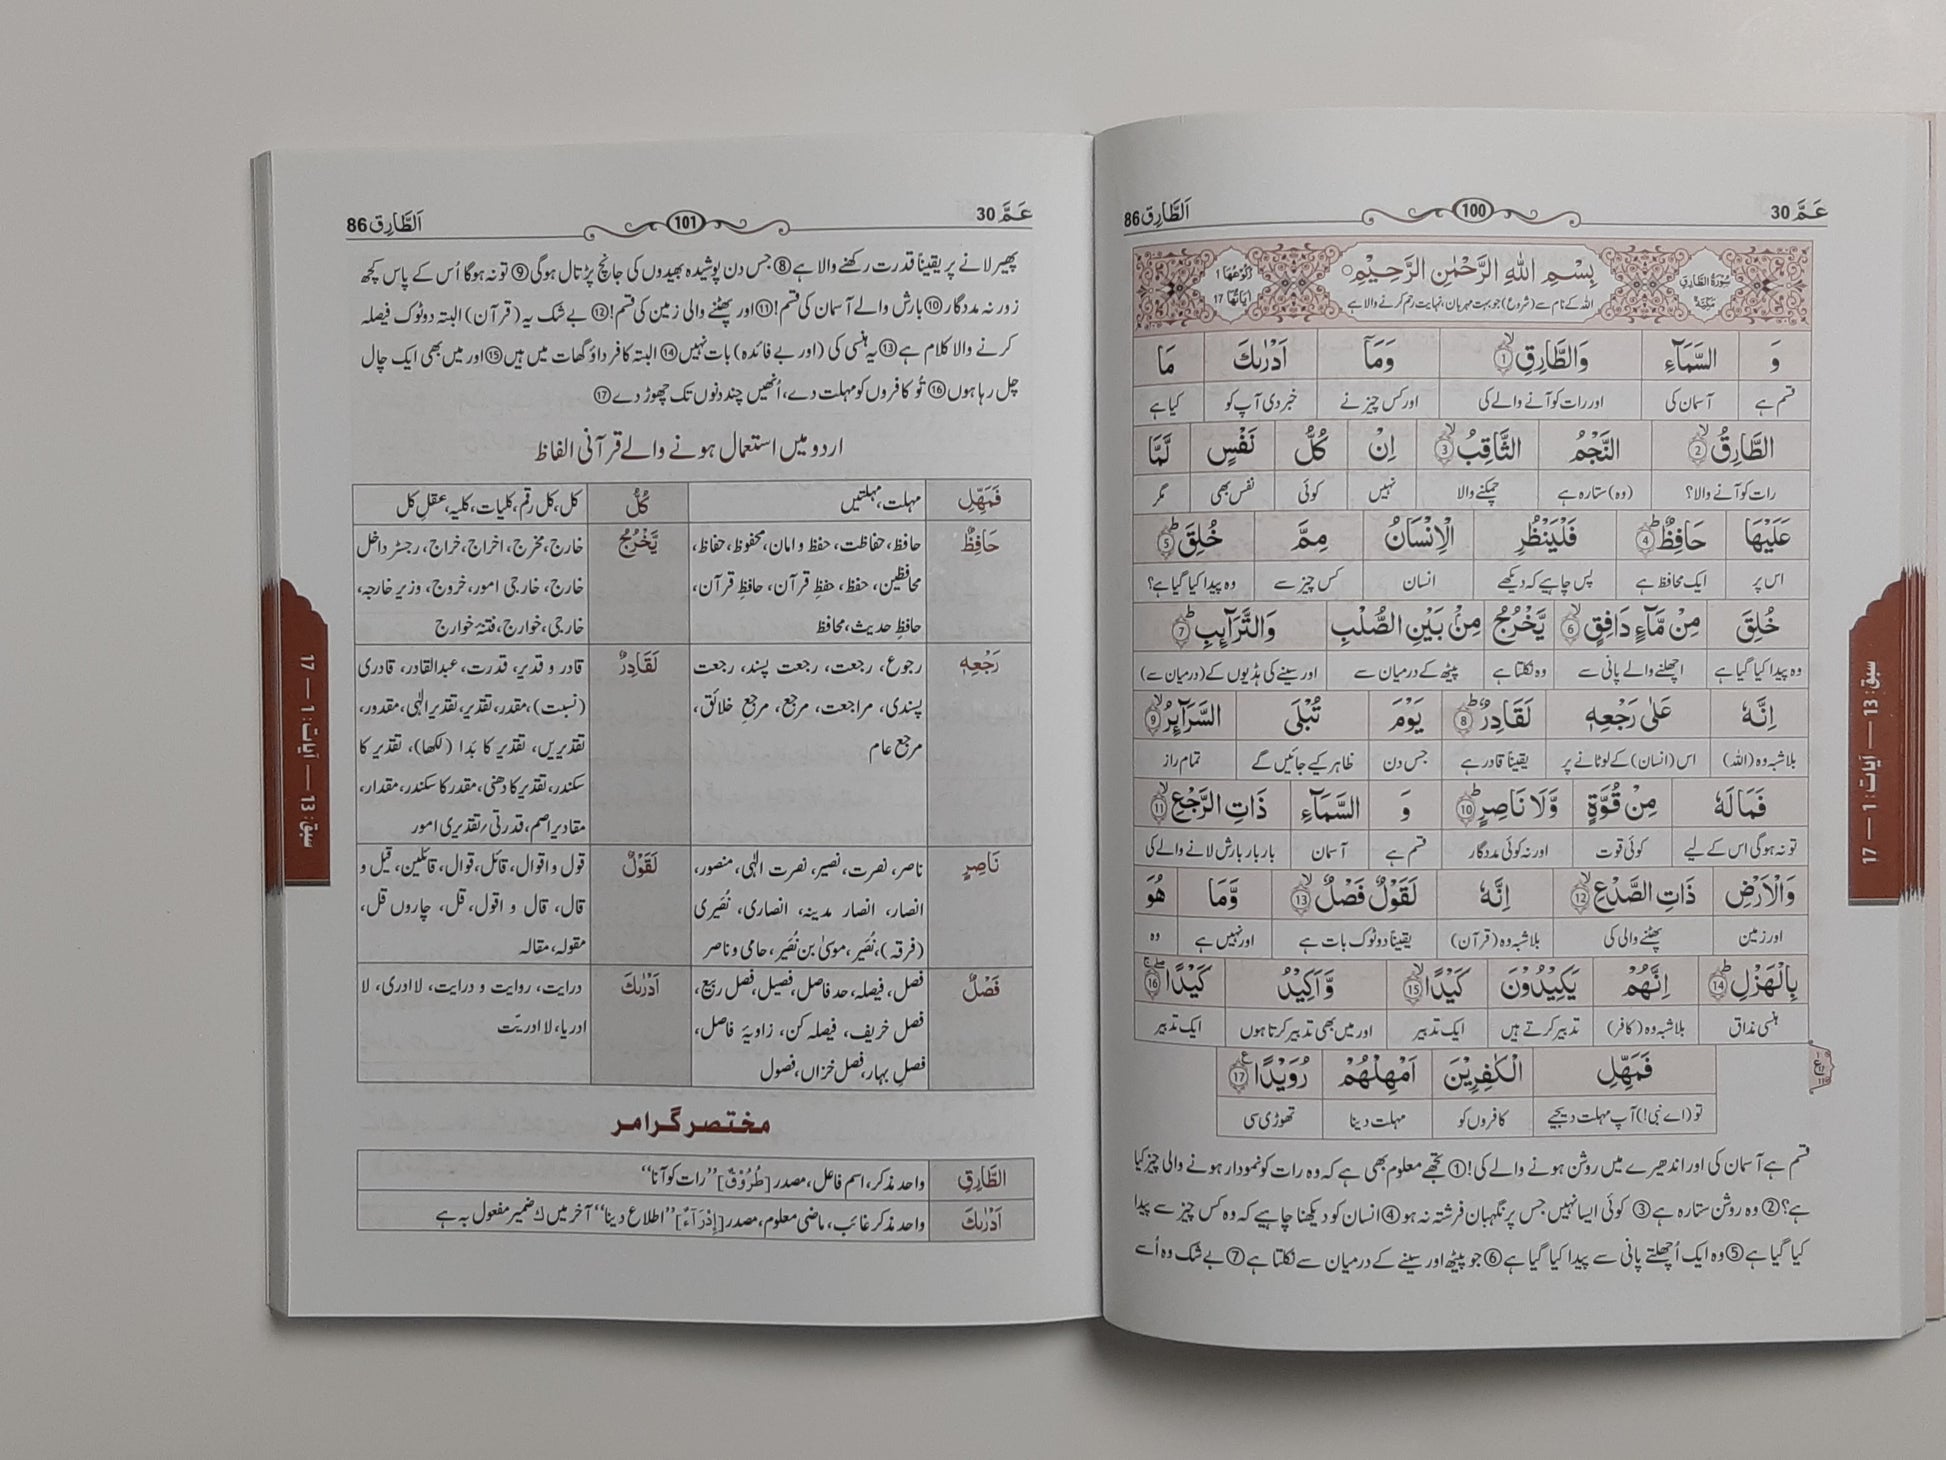 عَمَّ 30
100
اَلطَّارِق 86
سُوْرَةُ الطَّارِقِ مَکِّیَّةٌ
بِسْمِ اللّٰهِ الرَّحْمٰنِ الرَّحِیْمِ
رُکُوْعُهَا 1
اٰیَاتُهَا 17
اللہ کے نام سے (شروع) جو بہت مہربان، نہایت رحم کرنے والا ہے
وَ السَّمَآءِ وَالطَّارِقِ ① وَمَآ اَدْرٰىكَ مَا
قسم ہے آسمان کی اور رات کو آنے والے کی اور کس چیز نے خبر دی آپ کو کیا ہے
الطَّارِقُ ② النَّجْمُ الثَّاقِبُ ③ اِنْ كُلُّ نَفْسٍ لَّمَّا
رات کو آنے والا؟ (وہ) ستارہ ہے چمکنے والا نہیں کوئی نفس بھی مگر
عَلَیْهَا حَافِظٌ ④ فَلْیَنْظُرِ الْاِنْسَانُ مِمَّ خُلِقَ ⑤
اس پر ایک محافظ ہے پس چاہیے کہ دیکھے انسان کس چیز سے وہ پیدا کیا گیا ہے؟
خُلِقَ مِنْ مَّآءٍ دَافِقٍ ⑥ یَّخْرُجُ مِنْۢ بَیْنِ الصُّلْبِ وَالتَّرَآىِٕبِ ⑦
وہ پیدا کیا گیا ہے اچھلنے والے پانی سے وہ نکلتا ہے پیٹھ کے درمیان سے اور سینے کی ہڈیوں کے (درمیان سے)
اِنَّهٗ عَلٰى رَجْعِهٖ لَقَادِرٌ ⑧ یَوْمَ تُبْلَى السَّرَآىِٕرُ ⑨
بلاشبہ وہ (اللہ) اس (انسان) کے لوٹانے پر یقیناً قادر ہے جس دن ظاہر کیے جائیں گے تمام راز
فَمَا لَهٗ مِنْ قُوَّةٍ وَّلَا نَاصِرٍ ⑩ وَ السَّمَآءِ ذَاتِ الرَّجْعِ ⑪
تو نہ ہوگی اس کے لیے کوئی قوت اور نہ کوئی مددگار قسم ہے آسمان بار بار بارش لانے والے کی
وَالْاَرْضِ ذَاتِ الصَّدْعِ ⑫ اِنَّهٗ لَقَوْلٌ فَصْلٌ ⑬ وَّمَا هُوَ
اور زمین پھٹنے والی کی بلاشبہ وہ (قرآن) یقیناً دوٹوک بات ہے اور نہیں ہے وہ
بِالْهَزْلِ ⑭ اِنَّهُمْ یَكِیْدُوْنَ كَیْدًا ⑮ وَّاَكِیْدُ كَیْدًا ⑯
ہنسی مذاق بلاشبہ وہ (کافر) تدبیر کرتے ہیں ایک تدبیر اور میں بھی تدبیر کرتا ہوں ایک تدبیر
فَمَهِّلِ الْكٰفِرِیْنَ اَمْهِلْهُمْ رُوَیْدًا ⑰
تو (اے نبی!) آپ مہلت دیجیے کافروں کو مہلت دینا تھوڑی سی
قسم ہے آسمان کی اور اندھیرے میں روشن ہونے والے کی! ① تجھے معلوم بھی ہے کہ وہ رات کو نمودار ہونے والی چیز کیا
ہے؟ ② وہ روشن ستارہ ہے ③ کوئی ایسا نہیں جس پر نگہبان فرشتہ نہ ہو ④ انسان کو دیکھنا چاہیے کہ وہ کس چیز سے پیدا
کیا گیا ہے ⑤ وہ ایک اُچھلتے پانی سے پیدا کیا گیا ہے ⑥ جو پیٹھ اور سینے کے درمیان سے نکلتا ہے ⑦ بے شک وہ اُسے
سبق: 13 — آیات: 1 — 17
عَمَّ 30
101
اَلطَّارِق 86
پھیر لانے پر یقیناً قدرت رکھنے والا ہے ⑧ جس دن پوشیدہ بھیدوں کی جانچ پڑتال ہوگی ⑨ تو نہ ہوگا اُس کے پاس کچھ
زور نہ مددگار ⑩ بارش والے آسمان کی قسم! ⑪ اور پھٹنے والی زمین کی قسم! ⑫ بے شک یہ (قرآن) البتہ دوٹوک فیصلہ
کرنے والا کلام ہے ⑬ یہ ہنسی کی (اور بے فائدہ) بات نہیں ⑭ البتہ کافر داؤ گھات میں ہیں ⑮ اور میں بھی ایک چال
چل رہا ہوں ⑯ تُو کافروں کو مہلت دے، اُنھیں چند دنوں تک چھوڑ دے ⑰
اردو میں استعمال ہونے والے قرآنی الفاظ
فَمَهِّلِ مہلت، مہلتیں
كُلُّ کل، کل رقم، کلیات، کلیہ، عقلِ کل
حَافِظٌ حافظ، حفاظت، حفظ و امان، محفوظ، حفاظ،
محافظین، حفظ، حفظِ قرآن، حافظِ قرآن،
حافظِ حدیث، محافظ
یَّخْرُجُ خارج، مخرج، اخراج، خراج، رجسٹر داخل
خارج، خارجی امور، خروج، وزیر خارجہ،
خارجی، خوارج، فتنۂ خوارج
رَجْعِهٖ رجوع، رجعت، رجعت پسند، رجعت
پسندی، مراجعت، مرجع، مرجعِ خلائق،
مرجعِ عام
لَقَادِرٌ قادر و قدیر، قدرت، عبدالقادر، قادری
(نسبت)، مقدر، تقدیر، تقدیرِ الٰہی، مقدور،
تقدیریں، تقدیر کا بَدا (لکھا)، تقدیر کا
سکندر، تقدیر کا دھنی، مقدر کا سکندر، مقدار،
مقادیر اصم، قدرتی؍تقدیری امور
نَاصِرٍ ناصر، نصرت، نصیر، نصرت الٰہی، منصور،
انصار، انصار مدینہ، انصاری، نُصَیری
(فرقہ)، نُصَیر، موسیٰ بن نُصَیر، حامی و ناصر
لَقَوْلٌ قول و اقوال، قائل، قوال، قائلین، قیل و
قال، قال و اقول، قل، چاروں قل،
مقولہ، مقالہ
فَصْلٌ فصل، فیصلہ، حد فاصل، فصیل، فصل ربیع،
فصل خریف، فیصلہ کن، زاویۂ فاصل،
فصلِ بہار، فصل خزاں، فصول
اَدْرٰىكَ درایت، روایت و درایت، لا ادری، لا
ادریا، لا ادریّت
مختصر گرامر
الطَّارِقِ واحد مذکر، اسم فاعل، مصدر [طُرُوْقٌ] ‘‘رات کو آنا’’
اَدْرٰىكَ واحد مذکر غائب، ماضی معلوم، مصدر [اِدْرَآءٌ] ‘‘اطلاع دینا’’ آخر میں كَ ضمیر مفعول بہ ہے
سبق: 13 — آیات: 1 — 17